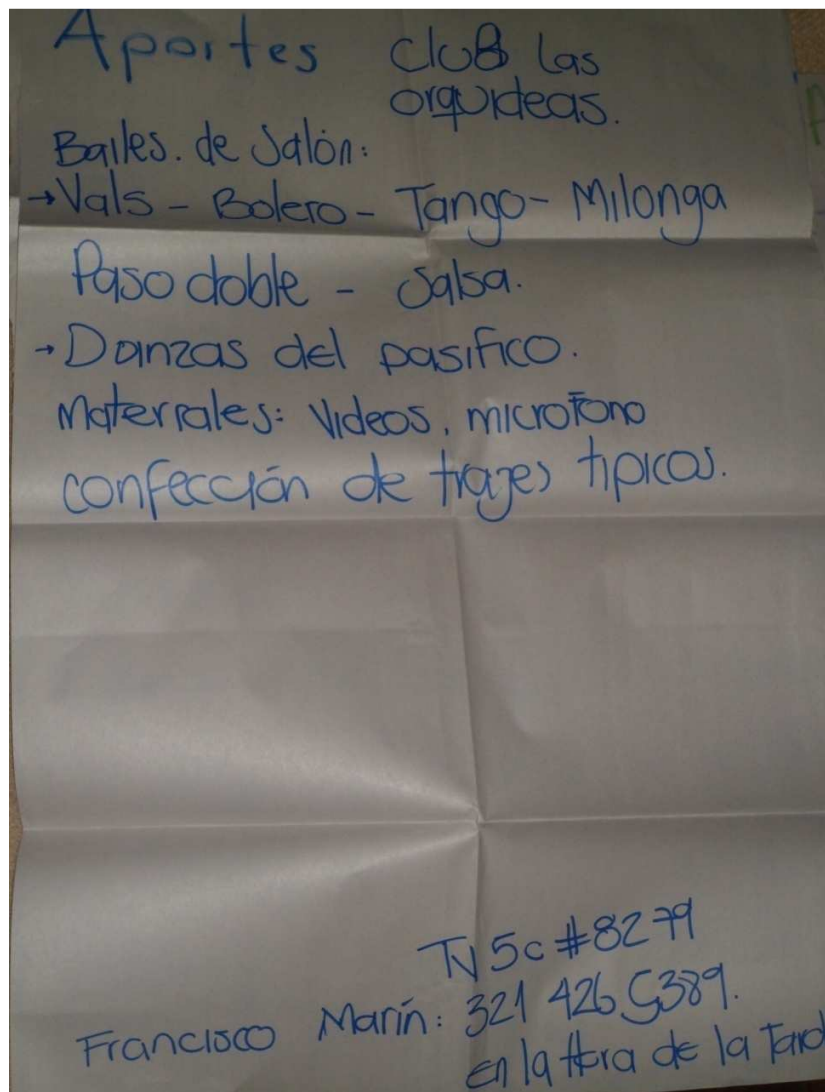 Aportes Club Las
orquideas.
Bailes. de Salón:
→Vals - Bolero - Tango - Milonga
Paso doble - Salsa.
→Danzas del pasifico.
Materiales: Videos, microfono
confección de trajes tipicos.
TV 5c #8279
Francisco Marín: 321 426 5389.
en la Hora de la Tard